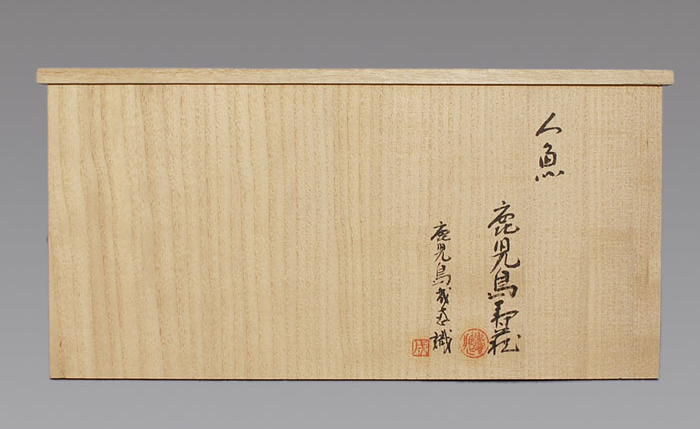 人魚
鹿児島寿蔵
鹿児島成恵識
成